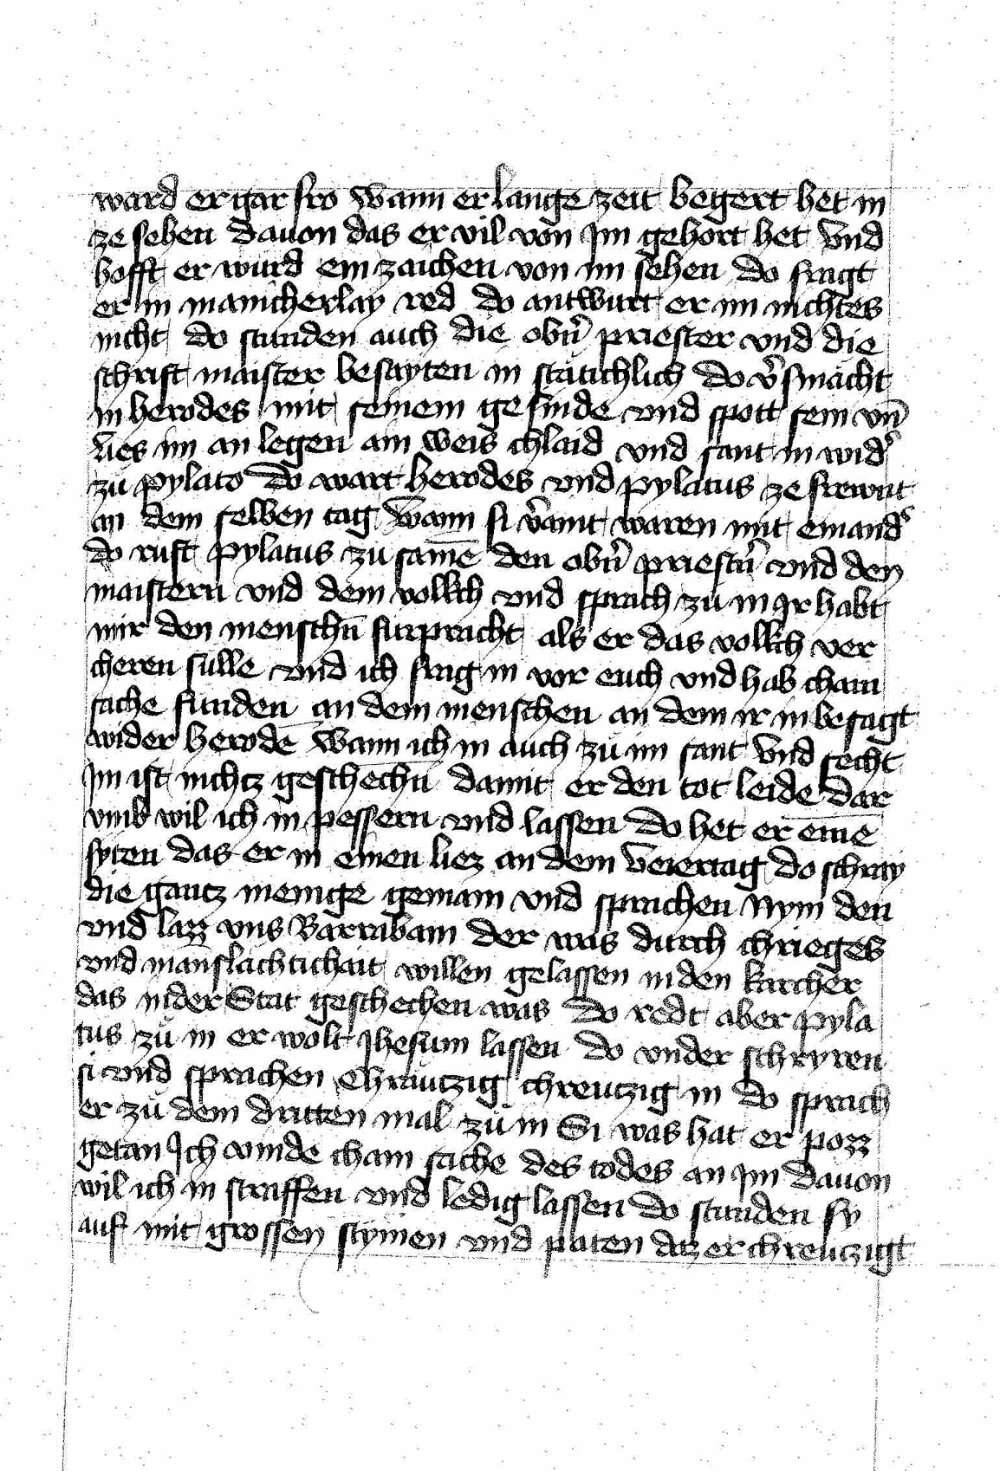 ward er gar fro Wann er lange zeit begert het in
ze sehen dauon das er vil von Jm gehört het Vnd
hofft er wurd ein zaichen von im sehen do fragt
er in manicherlay red do antwurt er im nichtes
nicht do stunden auch die obn̄ priester vnd die
schrift maister besayten in stätichlich do v̄smächt
in herodes mit seinem gesinde vnd spott sein vn̄
lies im an legen ain weis chlaid vnd sant in wid̾
zu pylato do wart herodes vnd pylatus ze frewnt
an dem selben tag Wann si v̄aint waren mit einand̾
do ruft pylatus zu samē den obn̄ priestn̄ vnd den
maistern vnd dem vollkch vnd sprach zu in Jr habt
mir den menschn̄ furpracht als er das vollkch ver
cheren sulle vnd ich frag in vor euch vnd hab chain
sache funden an dem menschen an dem ir in besagt
wider herodē Wann ich in auch zu im sant Vnd secht
Jm ist nichtz geschechn̄ damit er den tot leide dar
vmb wil ich in pessern vnd lassen do het er einē
syten das er in einen liez an dem Veiertag do schray
die gantz menige gemain vnd sprachen Nym den
vnd lazz vns Barrabam der was durch chrieges
vnd manslächtichait willen gelassen in den karcher
das in der Stat geschechen was do redt aber pyla
tus zu in er wolt Jhesum lassen do vnder schryren
si vnd sprachen Chräutzig chreutzig in do sprach
er zu dem dritten mal zu in Si was hat er pozz
getan Jch vinde cham sache des todes an Jm dauon
wil ich in straffen vnd ledig lassen do stunden sy
auf mit grossen stymen vnd paten daz er chreutzigt